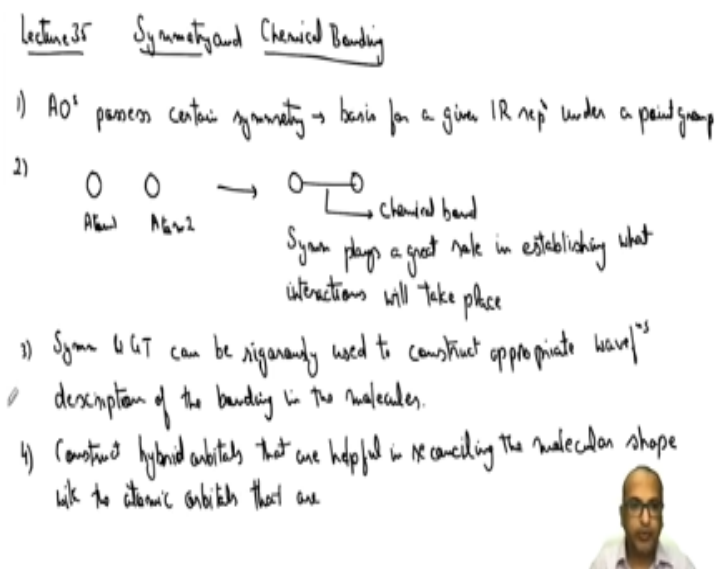 Lecture 35 Symmetry and Chemical Bonding
1) AOs possess certain symmetry → basis for a given IR repn under a point group
2)
Atom1 Atom2
Chemical bond
Symm plays a great role in establishing what
interactions will take place
3) Symm & GT can be rigorously used to construct appropriate wavefns
description of the bonding in the molecules.
4) Construct hybrid orbitals that are helpful in reconciling the molecular shape
with the atomic orbitals that are